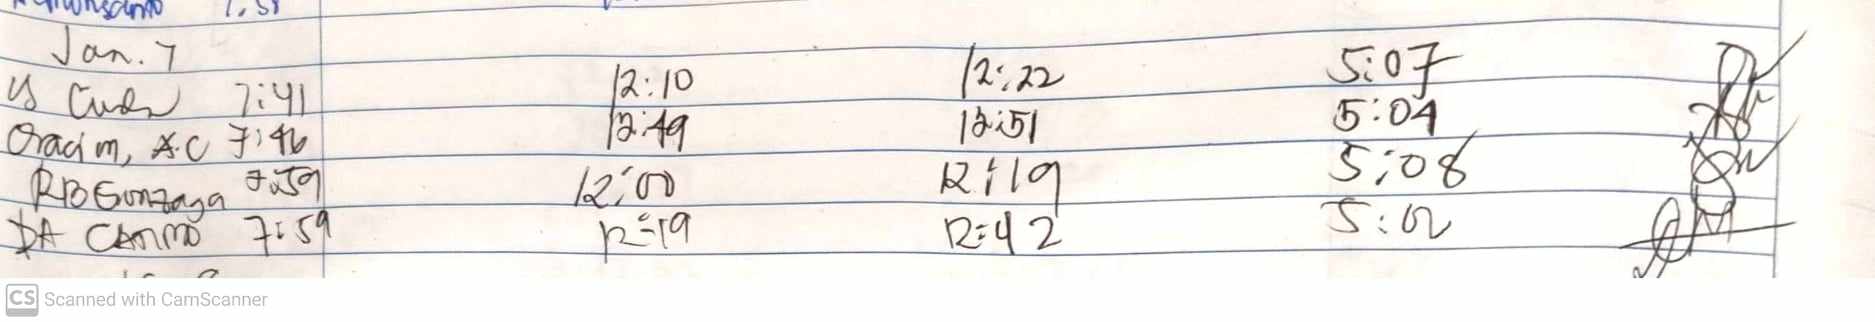 7:58
Jan. 7
7:41 12:10 12:22 5:07
Oracim, A.C 7:46 12:49 12:51 5:04
RB Gonzaga 7:59 12:00 12:19 5:08
DA 7:59 12:19 12:42 5:02
CS Scanned with CamScanner